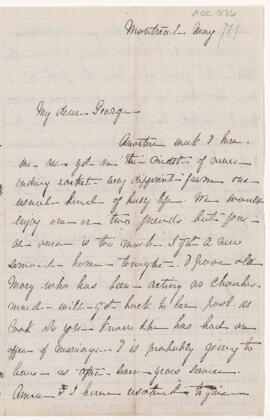 ACC 886
Montreal - May 7th
My dear George
Another week & here
we are yet in the midst of never
ending racket - very different from our
usual kind of busy life. We would
enjoy one or two friends but four
at once is too much. I get a new
servant home tonight - & poor old
Mary who has been acting as chamber
maid - will get back to her post as
Cook Do you know she has had an
offer of marriage - & is probably going to
leave us after seven years service.
Annie & I have to give